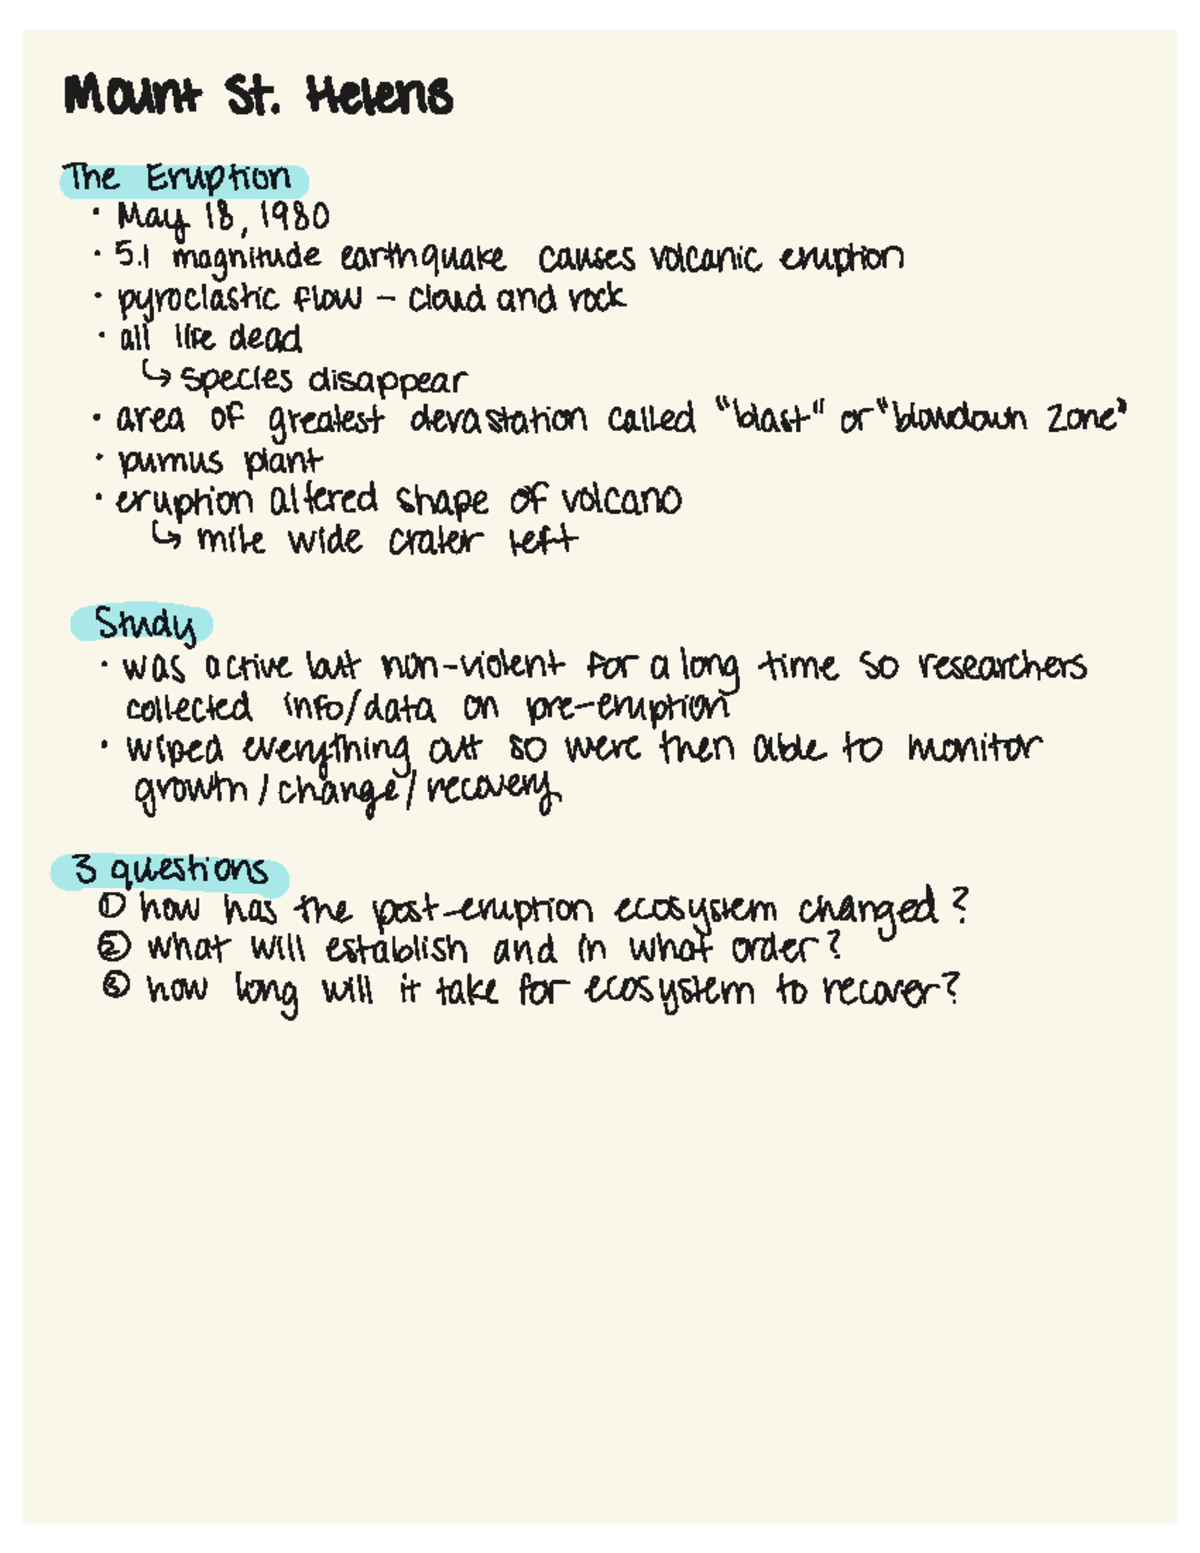 Mount St. Helens
The Eruption
• May 18, 1980
• 5.1 magnitude earthquake causes volcanic eruption
• pyroclastic flow – cloud and rock
• all life dead
↳ species disappear
• area of greatest devastation called "blast" or "blowdown zone"
• pumus plant
• eruption altered shape of volcano
↳ mile wide crater left
Study
• was active but non-violent for a long time so researchers
collected info/data on pre-eruption
• wiped everything out so were then able to monitor
growth/change/recovery
3 questions
① how has the post-eruption ecosystem changed?
② what will establish and in what order?
③ how long will it take for ecosystem to recover?